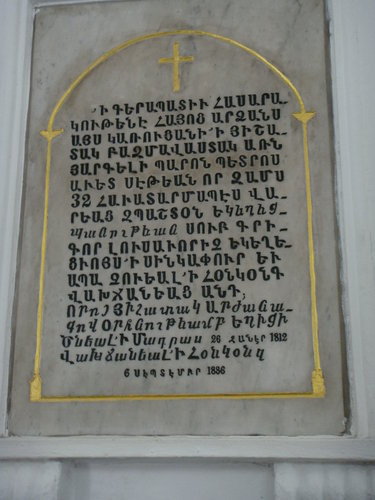 ՚Ի ԳԵՐԱՊԱՏԻՒ ՀԱՍԱՐԱ-
ԿՈՒԹԵՆԷ ՀԱՅՈՑ ԱՐՁԱՆՍ
ԱՅՍ ԿԱՌՈՒՑԱՆԻ ՚Ի ՅԻՇԱ-
ՏԱԿ ԲԱԶՄԱՎԱՍՏԱԿ ԱՌՆ
ՅԱՐԳԵԼԻ ՊԱՐՈՆ ՊԵՏՐՈՍ
ԱՒԵՏ ՍԷԹԵԱՆ ՈՐ ԶԱՄՍ
32 ՀԱՒԱՏԱՐՄԱՊԷՍ ՎԱ-
ՐԵԱՑ ԶՊԱՇՏՕՆ ԵԿԵՂԵՑ-
ՊԱՆՈՒԹԵԱՆ ՍՈՒԲ ԳՐԻ-
ԳՈՐ ԼՈՒՍԱՒՈՐԻՉ ԵԿԵՂԵ-
ՑԻՈՅՍ ՚Ի ՍԻՆԿԱՓՈՒՐ ԵՒ
ԱՊԱ ՉՈՒԵԱԼ ՚Ի ՀՕՆԿՕՆԳ
ՎԱԽՃԱՆԵԱՑ ԱՆԴ,
ՈՐՈՅ ՅԻՇԱՏԱԿ ԱՐԺԱՆԱ-
ՑՈՎ ՕՐՀՆՈՒԹԵԱՄԲ ԵՂԻՑԻ
ԾՆԵԱԼ ՚Ի ՄԱԴՐԱՍ 26 ՀԱՆԷՐ 1812
ՎԱԽՃԱՆԵԱԼ ՚Ի ՀՕՆԿՕՆԳ
6 ՍԵՊՏԵՄԲՐ 1886